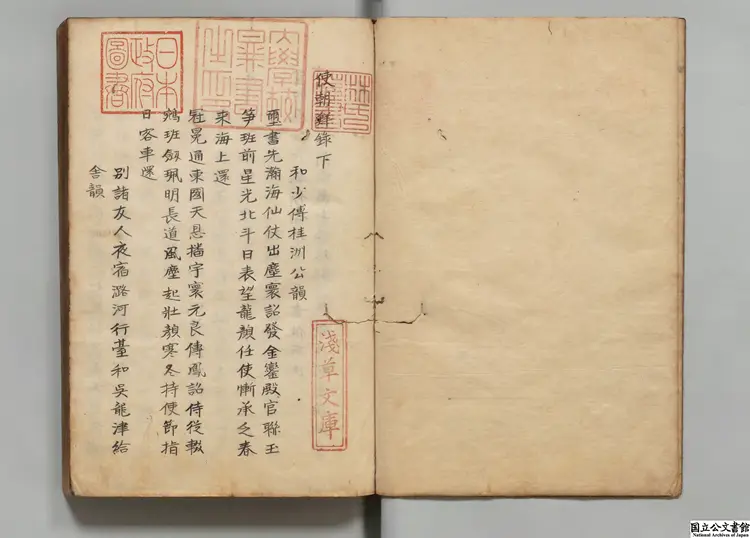 林氏藏書
大學校圖書之印
日本政府圖書
使朝鮮錄下
和少傅桂洲公韻
璽書先瀚海仙仗出塵寰詔發金鑾殿官聯玉
笋班前星光北斗日表望龍顏任使慚承乏春
來海上還
冠冕通東國天恩播宇寰元良傳鳳詔侍從輟
鵷班劔珮明長道風塵起壯顏寒冬持使節指
日客車還
別諸友人夜宿潞河行臺和吳龍津給
舍韻
淺草文庫
国立公文書館
National Archives of Japan